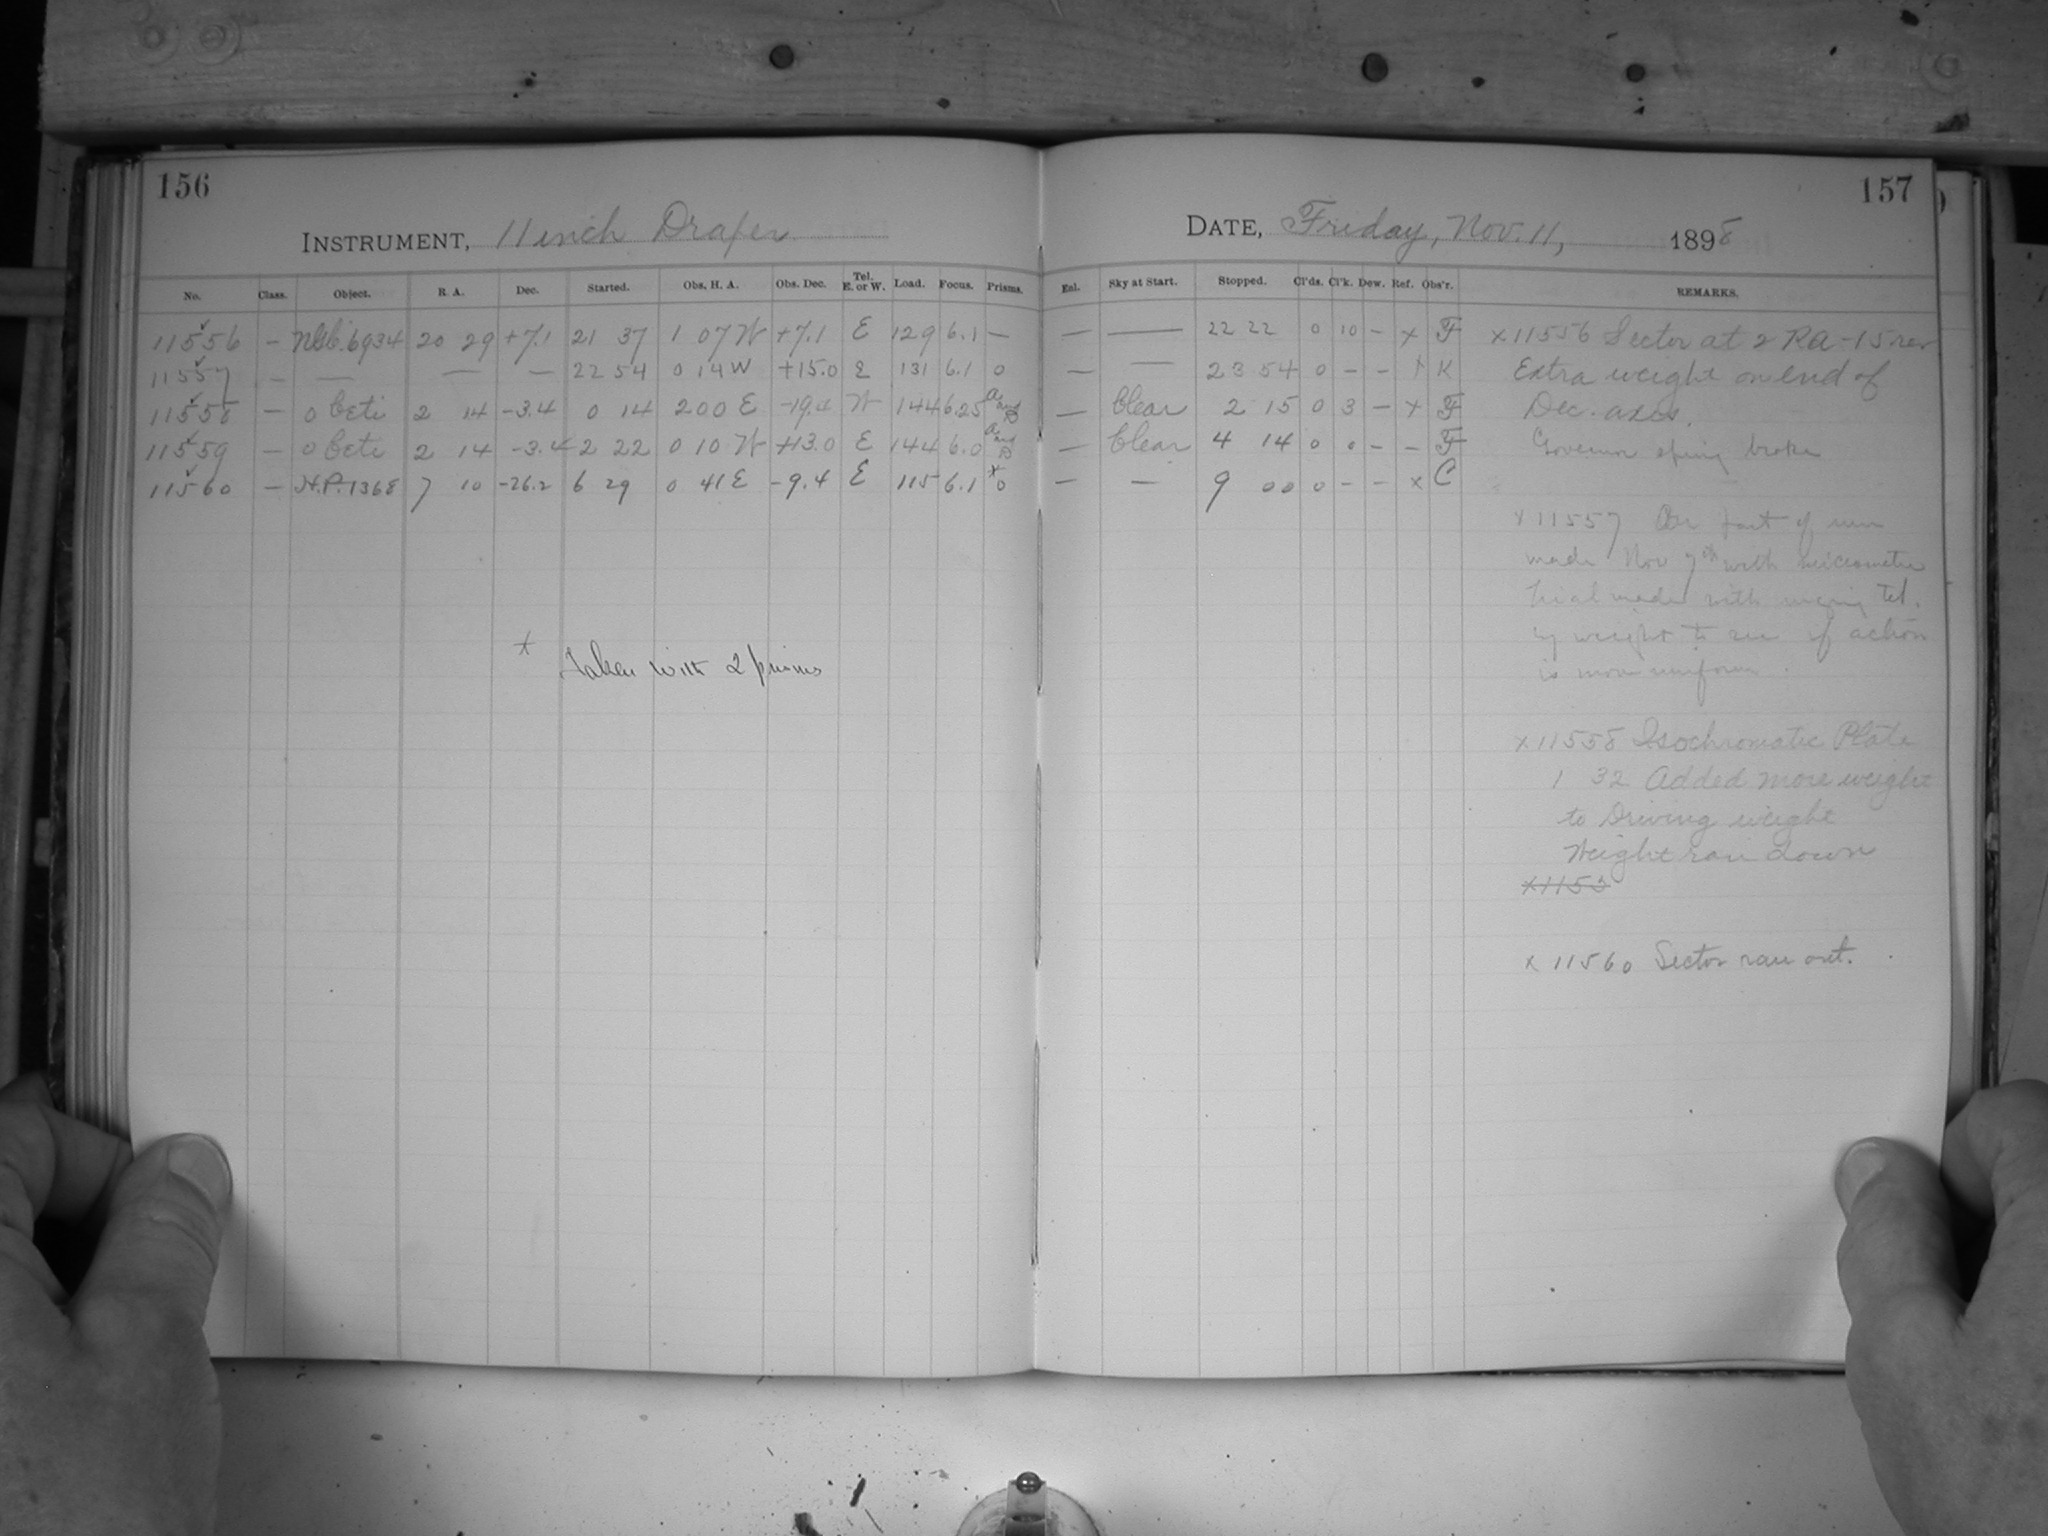 156
157
INSTRUMENT, 11 inch Draper
DATE, Friday, Nov. 11, 1898
No. Class. Object. R. A. Dec. Started. Obs. H. A. Obs. Dec. Tel. E. or W. Load. Focus. Prisms. Enl. Sky at Start. Stopped. Cl'ds. Cl'k. Dew. Ref. Obs'r. REMARKS.
11556 — N.G.C. 6934 20 29 +7.1 21 37 1 07 W +7.1 E 129 6.1 — — — 22 22 0 10 – x F
11557 — — — — 22 54 0 14 W +15.0 E 131 6.1 0 — — 23 54 0 – – K
11558 — o Ceti 2 14 -3.4 0 14 2 00 E -19.4 W 144 6.25 A and B — Clear 2 15 0 3 – x F
11559 — o Ceti 2 14 -3.4 2 22 0 10 W +13.0 E 144 6.0 A and B — Clear 4 14 0 0 – – F
11560 — H.P. 1368 7 10 -26.2 6 29 0 41 E -9.4 E 115 6.1 x 0 — — 9 00 0 – – x C
x Taken with 2 prisms
x 11556 Sector at 2 RA -15 rev
Extra weight on end of
Dec. axis.
Governor spring broke
x 11557 part of run
made Nov 7th with micrometer
Trial made with tel.
by weight to see if action
is more uniform.
x 11558 Isochromatic Plate
1 32 Added more weight
to Driving weight
Weight ran down
x 1153
x 11560 Sector ran out.